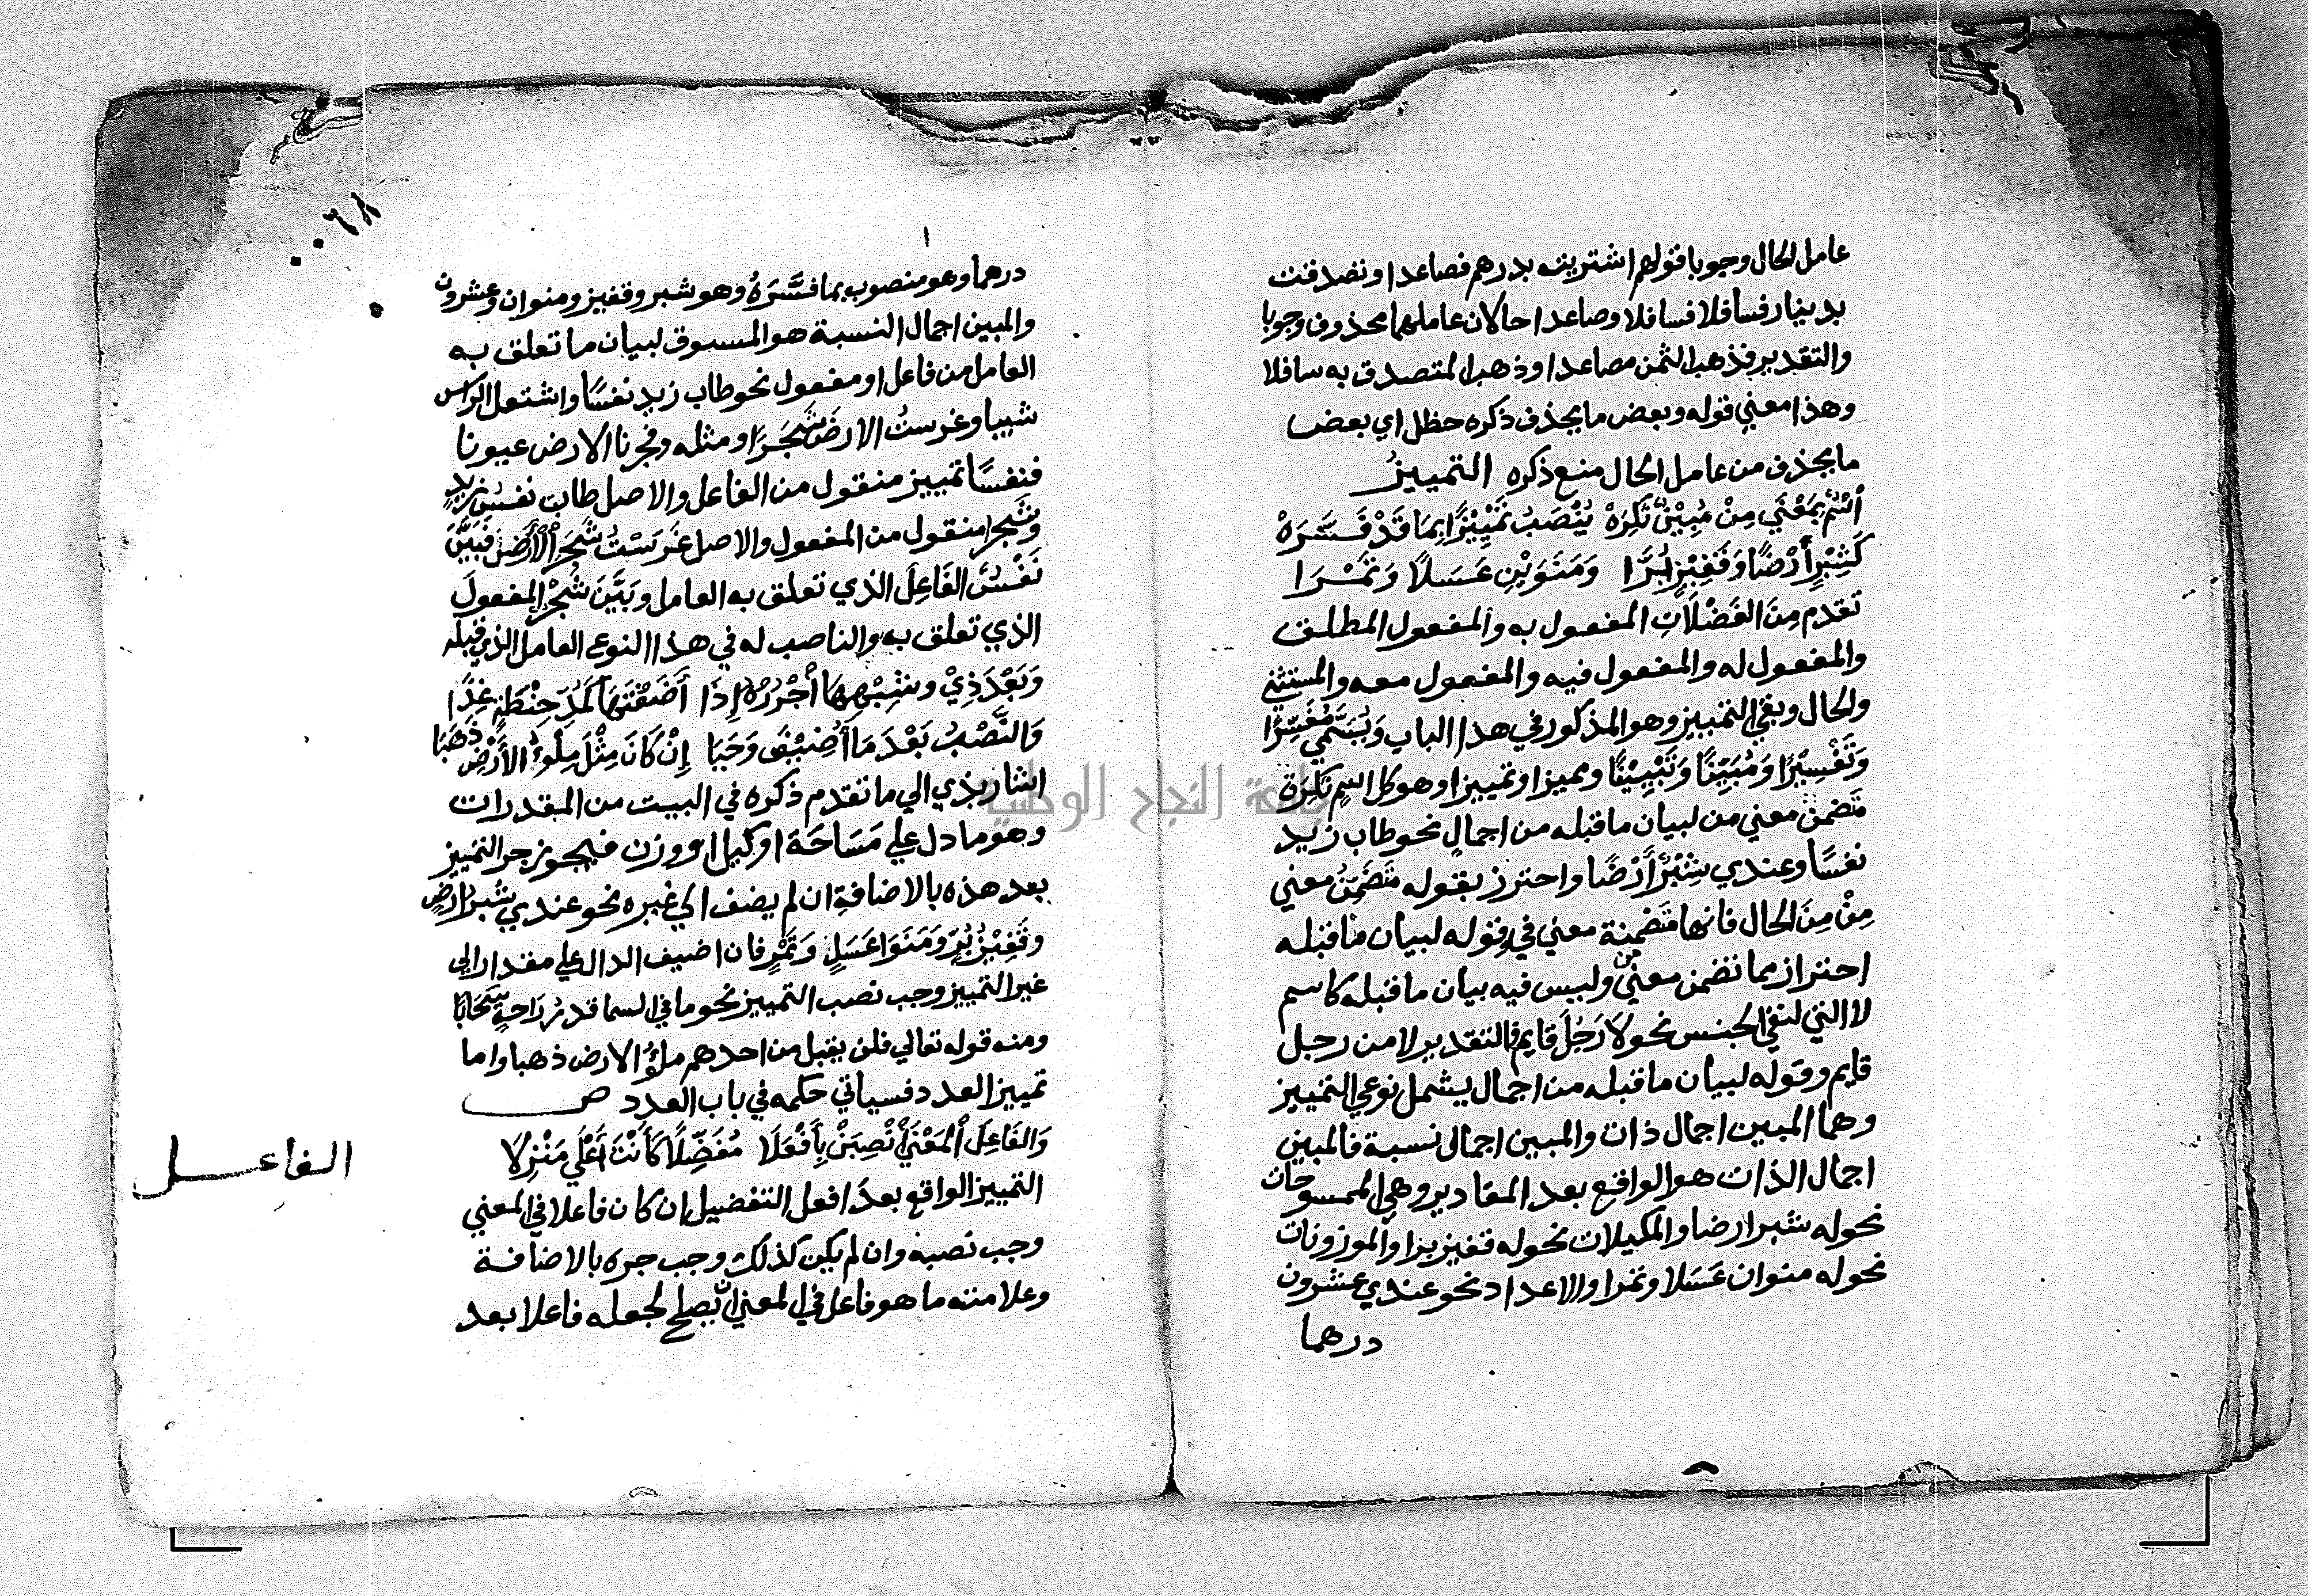 عامل الحال وجوبا قولهم اشتريته بدرهم فصاعدا وتصدقت
بدينار فسافلا فسافلا وصاعدا حالان عاملهما محذوف وجوبا
والتقدير فذهب الثمن صاعدا وذهب المتصدق به سافلا
وهذا معني قوله وبعض ما يحذف ذكره حظل اي بعض
ما يحذف من عامل الحال منع ذكره التمييز
اسْمٌ بِمَعْنَي مِنْ مُبِيْنٌ نَكِرَهْ يُنْصَبُ تَمْيِيْزًا بِمَا قَدْ فَسَّرَهْ
كَشِبْرٍ أَرْضًا وَقَفِيْزٍ بُرَّا وَمَنَوَيْنِ عَسَلًا وَتَمْرَا
تقدم مِنَ الفَضْلَاتِ المفعول به والمفعول المطلق
والمفعول له والمفعول فيه والمفعول معه والمستثني
والحال وبقي التمييز وهو المذكور في هذا الباب وَيُسَمَّي مُفَسِّرًا
وَتَفْسِيْرًا وَمُبَيِّنًا وَتَبْيِيْنًا ومميزا وتمييزا وهو كل اسم نَكِرَة
تَضمن معني من لبيان ما قبله من اجمالٍ نحو طاب زيد
نفسًا وعندي شِبْرٌ أَرْضًا واحترز بقوله تَضَمَّنَ معني
مِنْ مِنَ الحال فانها متضمنة معني في وقوله لبيان ما قبله
احتراز مما تضمن معني من وليس فيه بيان ما قبله كاسم
لا التي لنفي الجنس نحو لا رَجُلَ قايم فالتقدير لا من رجل
قايم وقوله لبيان ما قبله من اجمال يشمل نوعي التمييز
وهما المبين اجمال ذات والمبين اجمال نسبة فالمبين
اجمال الذات هو الواقع بعد المقادير وهي الممسوحات
نحو له شبر ارضا والمكيلات نحو له قفيز برا والموزونات
نحو له منوان عَسَلا وتمرا والاعداد نحو عندي عشرون
درهما
٠٠٦٨
درهما وهو منصوب بما فَسَّرَهُ وهو شبر وقفيز ومنوان وعشرون
والمبين اجمال النسبة هو المسوق لبيان ما تعلق به
العامل من فاعل او مفعول نحو طاب زيد نفسًا واشتعل الراس
شيبا وغرستُ الارضَ شَجَرًا ومثله وفجرنا الارض عيونا
فنفسًا تمييز منقول من الفاعل والاصل طابت نفسُ زيدٍ
وشجرا منقول من المفعول والاصل غَرَسْتُ شَجَرَ الْأَرْضِ فَبَيَّنَ
نَفْسًا الفَاعِلَ الذي تعلق به العامل وبَيَّنَ شَجْرًا المفعولَ
الذي تعلق به والناصب له في هذا النوع العامل الذي قبله
وَبَعْدَ ذِيْ وَشِبْهِهَا أجْرُرْهُ إِذَا أَضَفْتَهَا كَمُدِّ حِنْطَةٍ غِذَا
وَالنَّصْبُ بَعْدَ مَا أُضِيْفَ وَجَبَا إِنْ كَانَ مِثْلَ مِلْءُ الأَرْضِ ذَهَبَا
اشار بذي الي ما تقدم ذكره في البيت من المقدرات
وهو ما دل علي مَسَاحَةَ اوكيل او وزن فيجوز جر التمييز
بعد هذه بالاضافة ان لم يضف الي غيره نحو عندي شبر ارضٍ
وقَفِيْزُ بُرٍّ وَمَنَوَا عَسَلٍ وَتَمْرٍ فان اضيف الدال علي مقدار الي
غير التمييز وجب نصب التمييز نحو ما في السما قدرُ رَاحةٍ سَحَابًا
ومنه قوله تعالي فلن يقبل من احدهم ملؤُ الارض ذهبا واما
تمييز العدد فسياتي حكمه في باب العدد ص
وَالفَاعِلَ الْمَعْنَي أنْصِبَنْ بِأَفْعَلَا مُفَضِّلًا كَأَنْتَ أَعْلَي مَنْزِلَا
التمييز الواقع بعدَ افعل التفضيل ان كان فاعلا في المعني
وجب نصبه وان لم يكن كذلك وجب جره بالاضافة
وعلامته ما هو فاعل في المعني ان يصلح لجعله فاعلا بعد
الفاعل
جامعة النجاح الوطنية